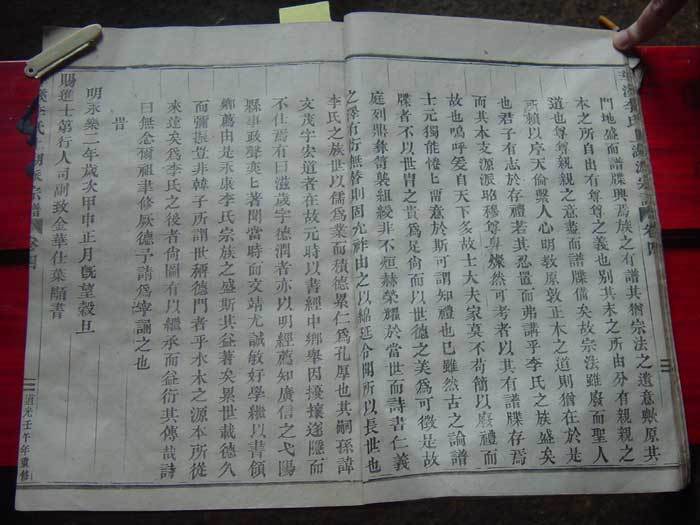 門地盛而譜牒興焉族之有譜其猶宗法之遺意歟原其
本之所自出有尊尊之義也別其末之所由分有親親之
道也尊尊親親之意盡而譜牒備矣故宗法雖廢而聖人
所賴以序天倫繫人心明教原敦正本之道則猶在於是
也君子有志於存禮若其忽置而弗講乎李氏之族盛矣
而本支源派昭穆尊卑燦然可考者以其有譜牒存焉
故也嗚呼爰自天下多故士大夫家莫不苟簡以廢禮而
士元獨能惓惓畱意於斯可謂知禮也已雖然古之論譜
牒者不以世胄之貴爲足尙而以世德之美爲可徵是故
庭列鼎彝笥襲組綬非不烜赫榮耀於當世而詩書仁義
之澤有所無替則固允祚由之以綿延令聞所以長世也
李氏之族世以儒爲業而積德累仁爲孔厚也其嗣孫諱
文茂字宏道者在故元時以書經中鄉舉因擾攘遂隱而
不仕焉有曰滋歲字德潤者亦以明經薦知廣信之弋陽
縣事政聲英匕著聞當時而文靖尤誠敏好學繼以書領
鄉薦由是永康李氏宗族之盛斯其益著矣累世載德久
而彌振豈非韓子所謂世稱德門者乎水木之源本所從
來遠矣爲李氏之後者尙圖有以繼承而益衍其傳哉詩
曰無念爾祖聿修厥德予請爲寧誦之也
旹
明永樂二年歲次甲申正月旣望穀旦
賜進士第行人司副致金華仕葉顒書
道光壬午年重修